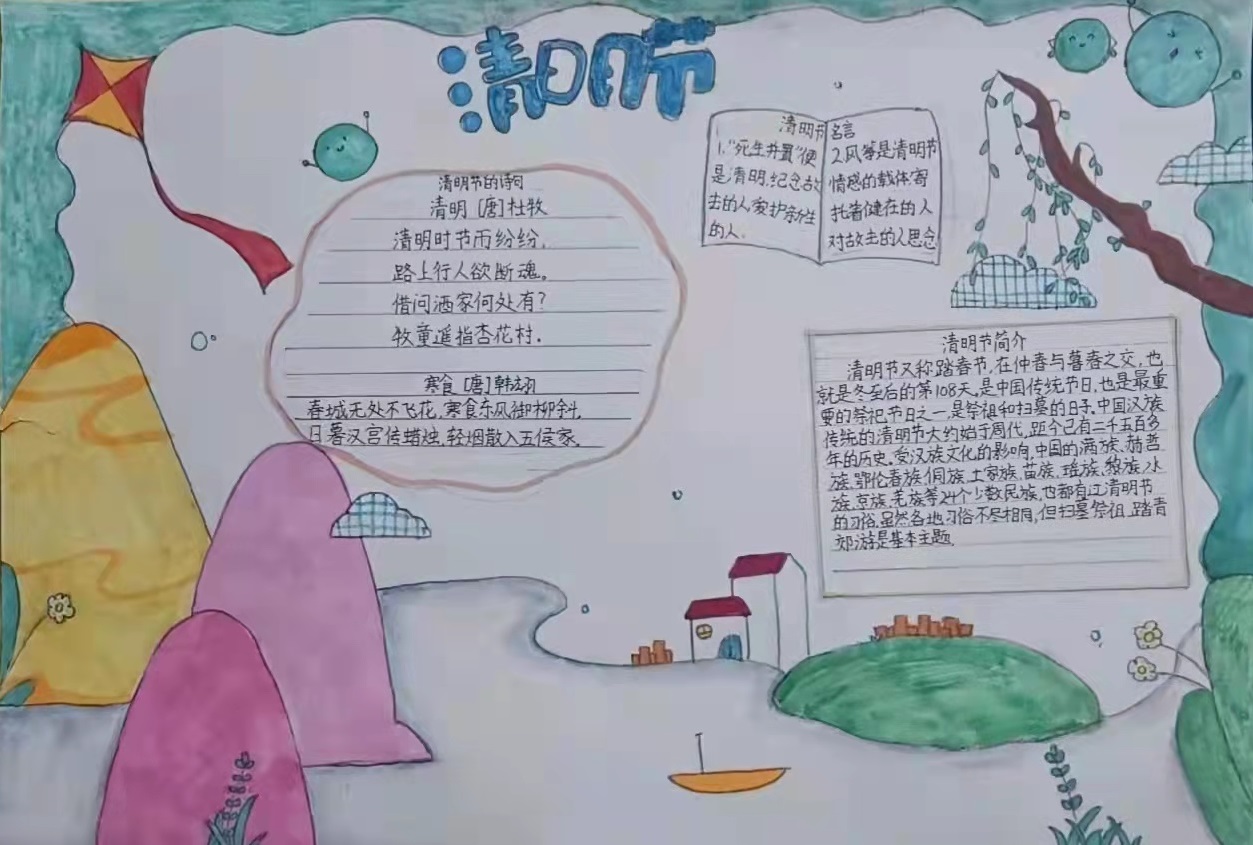 清明节
清明节的诗句
清明 [唐]杜牧
清明时节雨纷纷,
路上行人欲断魂。
借问酒家何处有?
牧童遥指杏花村.
寒食 [唐]韩翃
春城无处不飞花,寒食东风御柳斜.
日暮汉宫传蜡烛,轻烟散入五侯家.
清明节名言
1."死生并置"便
是清明,纪念故
去的人,爱护余生
的人.
2.风筝是清明节
情感的载体,寄
托着健在的人
对故去的人思念
清明节简介
清明节又称踏春节,在仲春与暮春之交,也
就是冬至后的第108天,是中国传统节日,也是最重
要的祭祀节日之一,是祭祖和扫墓的日子.中国汉族
传统的清明节大约始于周代,距今已有二千五百多
年的历史.受汉族文化的影响,中国的满族、赫哲
族、鄂伦春族、侗族、土家族、苗族、瑶族、黎族、水
族、京族、羌族等24个少数民族,也都有过清明节
的习俗,虽然各地习俗不尽相同,但扫墓祭祖、踏青
郊游是基本主题.